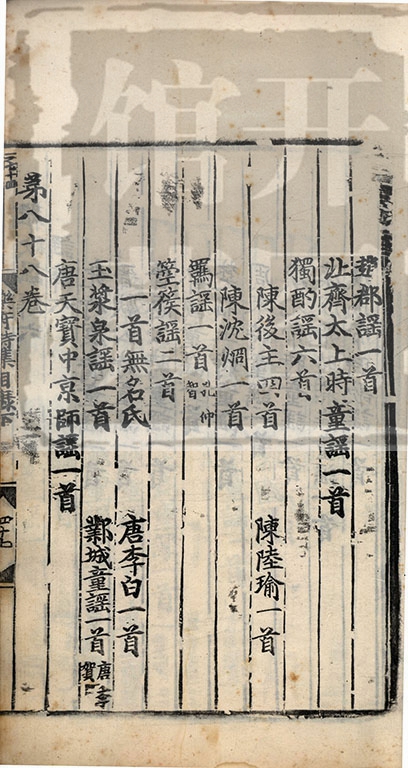 鄴郡謠一首
北齊太上時童謠一首
獨酌謠六首
陳後主四首 陳陸瑜一首
陳沈烱一首
羈謠一首 孔仲智
箜篌謠二首
一首無名氏 唐李白一首
玉漿泉謠一首 鄴城童謠一首 唐李賀
唐天寶中京師謠一首
第八十八卷
樂府詩集目錄下
四十七
开
馆